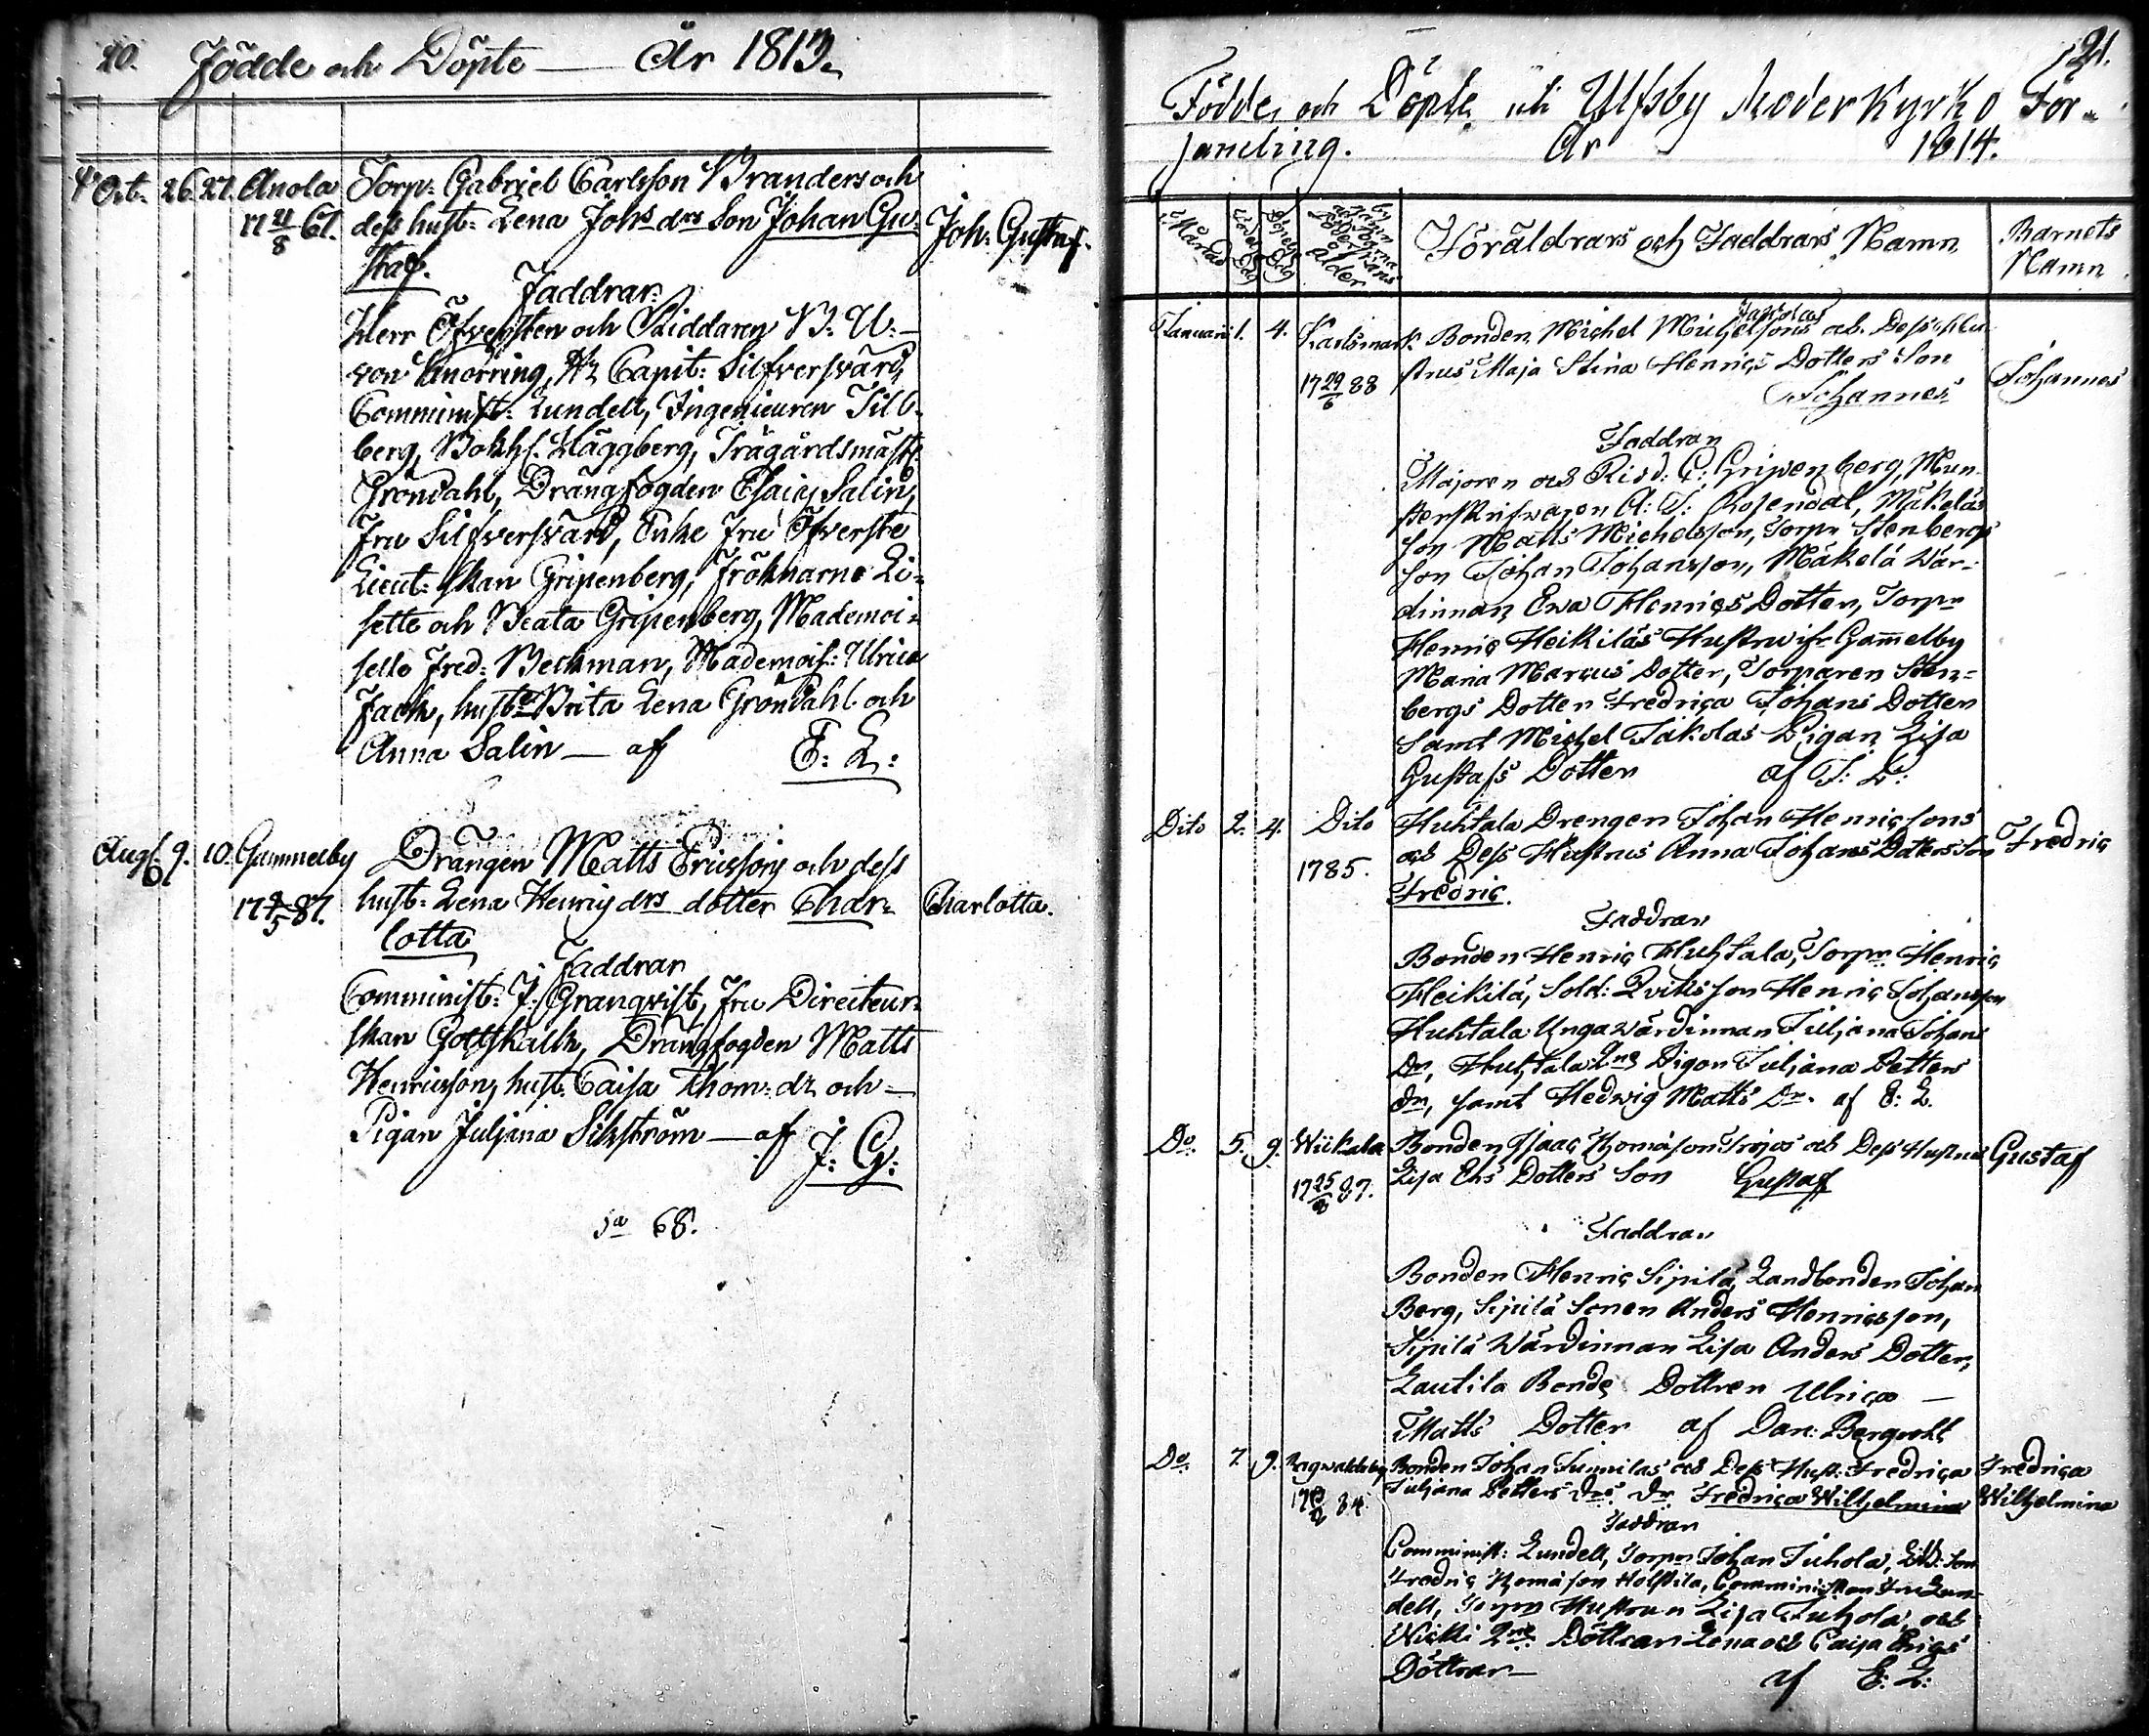 20. Födde och Döpte — År 1813.
4 Oct. 26. 27. Anola Torp: Gabriel Carlsson Branders och
17 11/8 61. dess hust: Lena Johs drs Son Johan Gu- Joh: Gustaf.
staf.
Faddrar:
Herr Öfversten och Riddaren B: U:
von Knorring, Hr Capit: Silfversvärd,
Comminist: Lundell, Ingenieuren Till-
berg, Bokh. Häggberg, Trägårdsmäst.
Gröndahl, Drängfogden Esaias Salin,
Fru Silfversvärd, Enke Fru Öfverste
Lieut: skan Gripenberg, Fröknarne Li-
sette och Beata Gripenberg, Mademoi-
selle Fred: Beckman, Mademois: Ulrica
Fack, hust Brita Lena Gröndahl och
Anna Salin — af E: L:
Aug. 9. 10. Gammelby Drängen Matts Ericsson och dess
17 87. hust: Lena Henrics drs dotter Char- Charlotta.
lotta
Faddrar
Comminist: J: Granqvist, Fru Directeur-
skan Gottskalk, Drängfogden Matts
Henricsson, hust. Caisa Thom: dr och —
Pigan Juliana Sikström — af J: G:
sa 68.
21.
Födde och Döpte uti Ulfsby Moder Kyrko För-
samling. År 1814.
Månad Födelse Dag Döpelse Dag Föräldrars och Faddrars Namn Barnets
Ålder Namn
Jakolas
Januari 1. 4. Karlsmark Bonden Michel Michelsons och Dess Hu-
17 29/6 88 strus Maja Stina Henrics Dotters Son Johannes
Johannes
Faddrar
Majoren och Ridd: G: Gripenberg, Mun-
sterskrifwaren A: J: Rosendal, Mäkeläs
Son Matts Michelsson, Torpr Stenbergs
Son Johan Johansson, Mäkelä Wär-
dinnan Ewa Henrics Dotter, Torpr
Henric Heikiläs Hustru ifr Gammelby
Maria Marcus Dotter, Torparen Sten-
bergs Dotter Fredrica Johans Dotter
Samt Michel Jakolas Pigan Lisa
Gustafs Dotter af E: L:
Dito 2. 4. Dito Huhtala Drengen Johan Henricsons
1785. och Dess Hustrus Anna Johans Dotters Son Fredric
Fredric.
Faddrar
Bonden Henric Huhtala, Torpr Henric
Heikilä, Sold: Qviks Son Henric Johansson
Huhtala Unga wärdinnan Juliana Johans
Dr, Huhtala Pigan Juliana Petters
dr, samt Hedwig Matts Dr. af E: L.
Do. 5. 9. Wickala Bonden Isaac Thomason Trojos och Dess Hustrus Gustaf
17 25 87. Lisa Dotters Son Gustaf
Faddrar
Bonden Henric Sipilä, Landbonden Johan
Berg, Sipilä Sonen Anders Henricsson,
Sipilä Wärdinnan Lisa Anders Dotter,
Lautila Bonde Dottren Ulrica —
Matts Dotter af Dan: Bergwall
Do. 7 9. Ragwaldsby Bonden Johan Simulas och Dess Hust: Fredrica Fredrica
84 Juliana Petters drs dr Fredrica Wilhelmina Wilhelmina
Faddrar
Comminist: Lundell, Torpr Johan Juhola, Son
Fredric Thomason Holstila, Comministerskan Fru Lun-
dell, Torpr Hustrun Lisa Juhola, och
Wicki Döttrar Lena och Caisa Erics
Döttrar — af E: L: